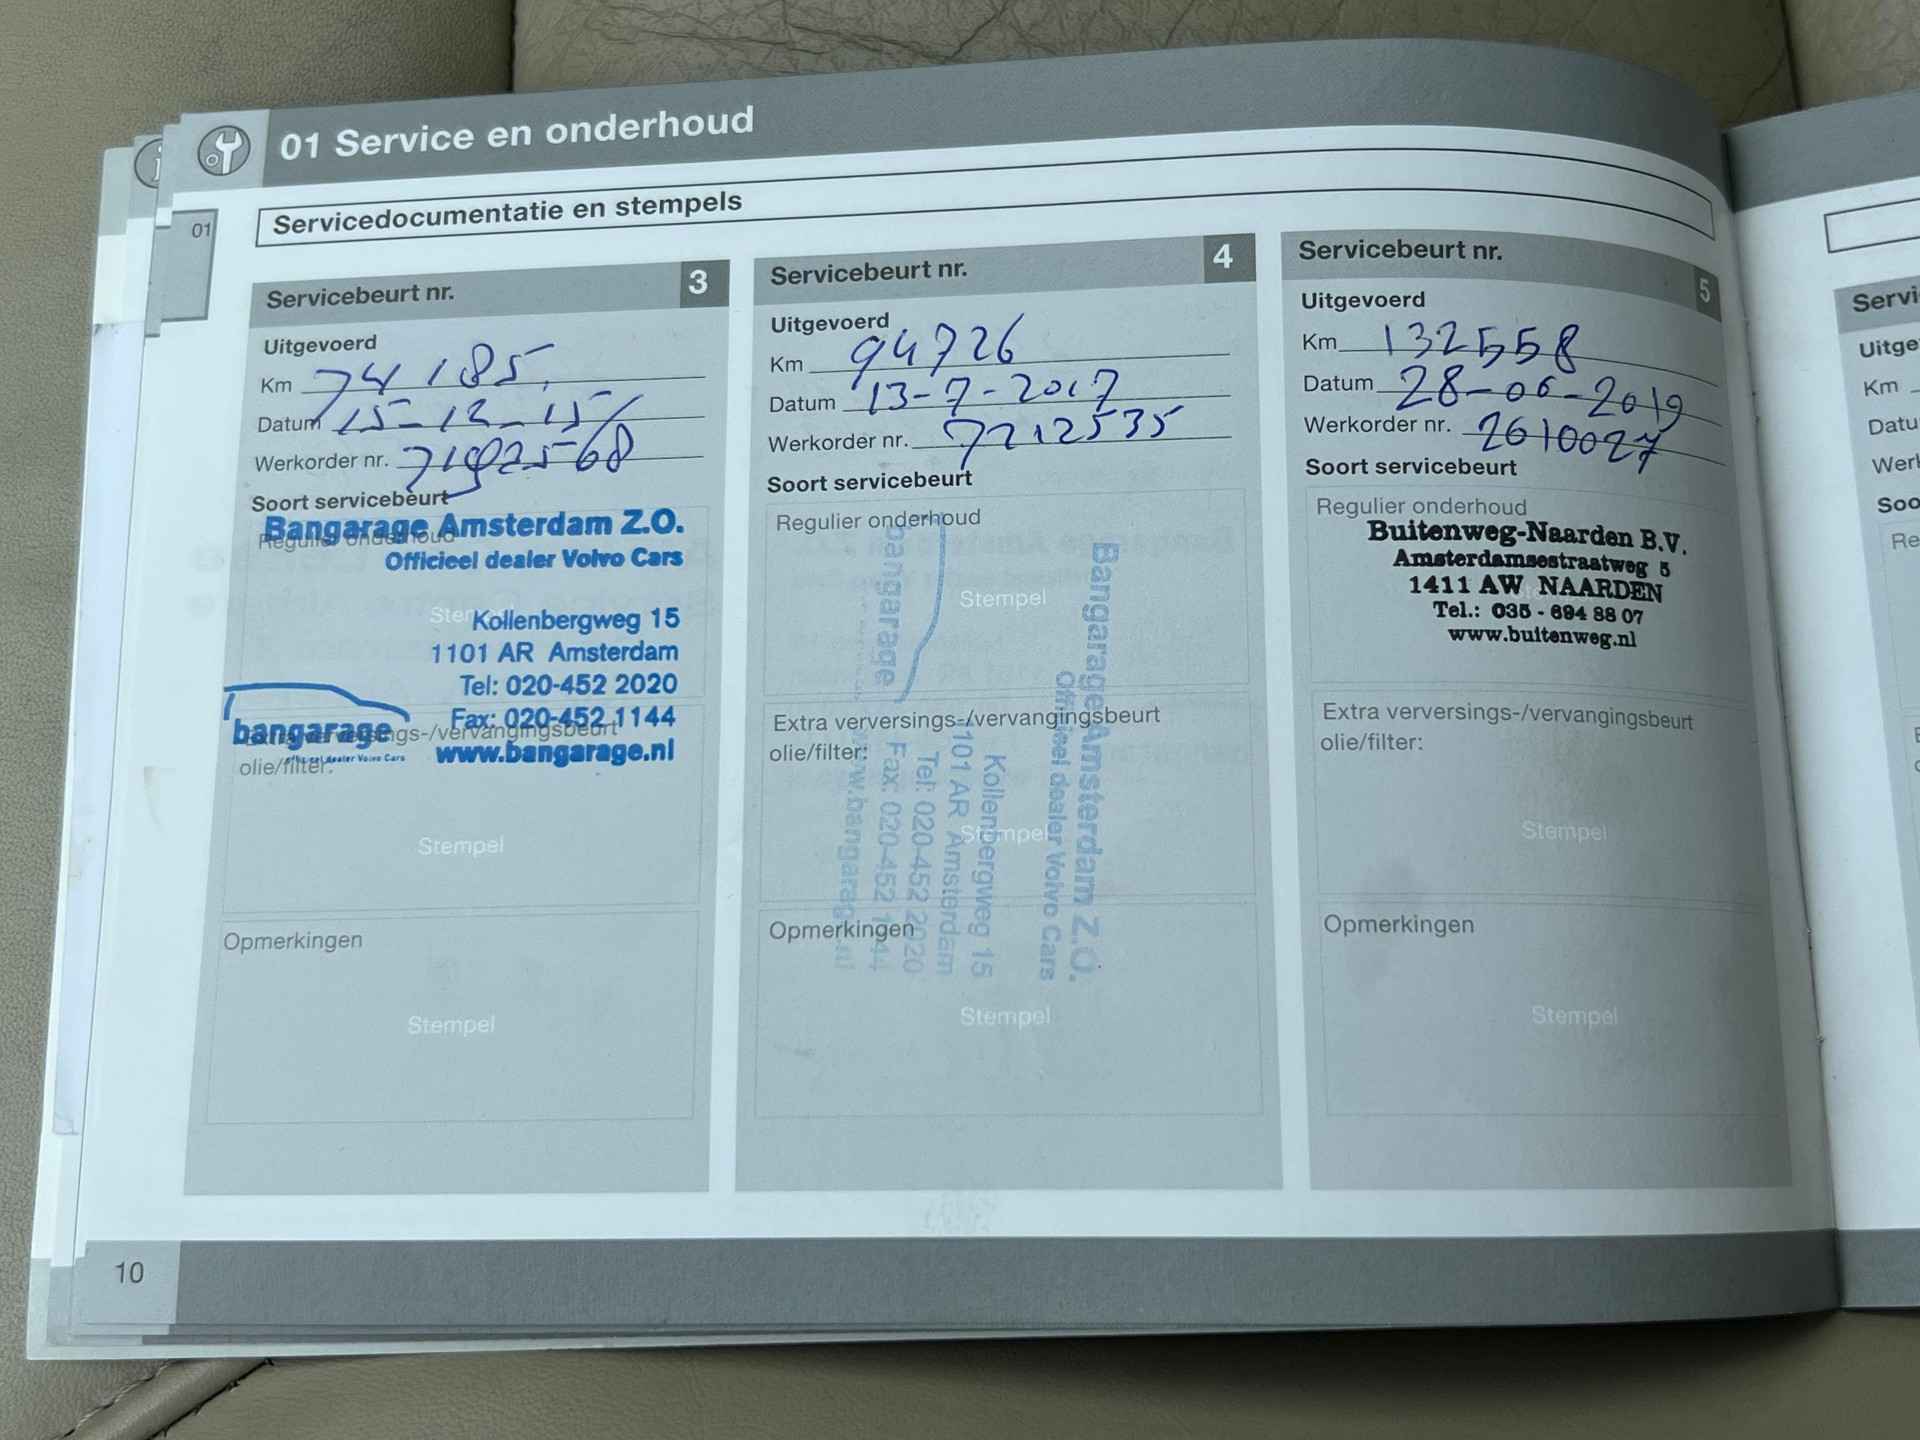 01 Service en onderhoud
01
Servicedocumentatie en stempels
Servicebeurt nr. 3
Uitgevoerd
Km 74185
Datum 15-12-15
Werkorder nr.
Soort servicebeurt
Regulier onderhoud
Bangarage Amsterdam Z.O.
Officieel dealer Volvo Cars
Kollenbergweg 15
1101 AR Amsterdam
Tel: 020-452 2020
Fax: 020-452 1144
www.bangarage.nl
bangarage
Officieel dealer Volvo Cars
Extra verversings-/vervangingsbeurt
olie/filter:
Stempel
Opmerkingen
Stempel
Servicebeurt nr. 4
Uitgevoerd
Km 94726
Datum 13-7-2017
Werkorder nr. 7212535
Soort servicebeurt
Regulier onderhoud
Stempel
Bangarage Amsterdam Z.O.
Officieel dealer Volvo Cars
Kollenbergweg 15
1101 AR Amsterdam
Tel: 020-452 2020
Fax: 020-452 1144
www.bangarage.nl
bangarage
Extra verversings-/vervangingsbeurt
olie/filter:
Stempel
Opmerkingen
Stempel
Servicebeurt nr. 5
Uitgevoerd
Km 132558
Datum 28-06-2019
Werkorder nr. 2610027
Soort servicebeurt
Regulier onderhoud
Buitenweg-Naarden B.V.
Amsterdamsestraatweg 5
1411 AW NAARDEN
Tel.: 035 - 694 88 07
www.buitenweg.nl
Extra verversings-/vervangingsbeurt
olie/filter:
Stempel
Opmerkingen
Stempel
10
Km